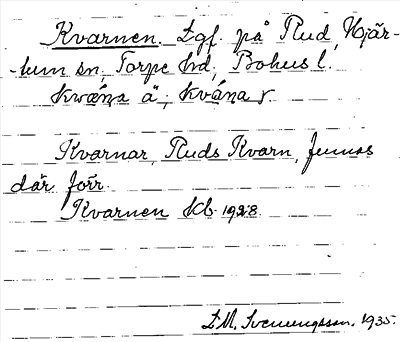 Kvarnen. Lgf. på Rud, Hjär-
-tum sn, Torpe hd, Bohus l.
kwæ̀na ä, kvána y.
Kvarnar, Ruds Kvarn, funnos
där förr.
Kvarnen Kb. 1928.
L.M. Svenungsson. 1935.